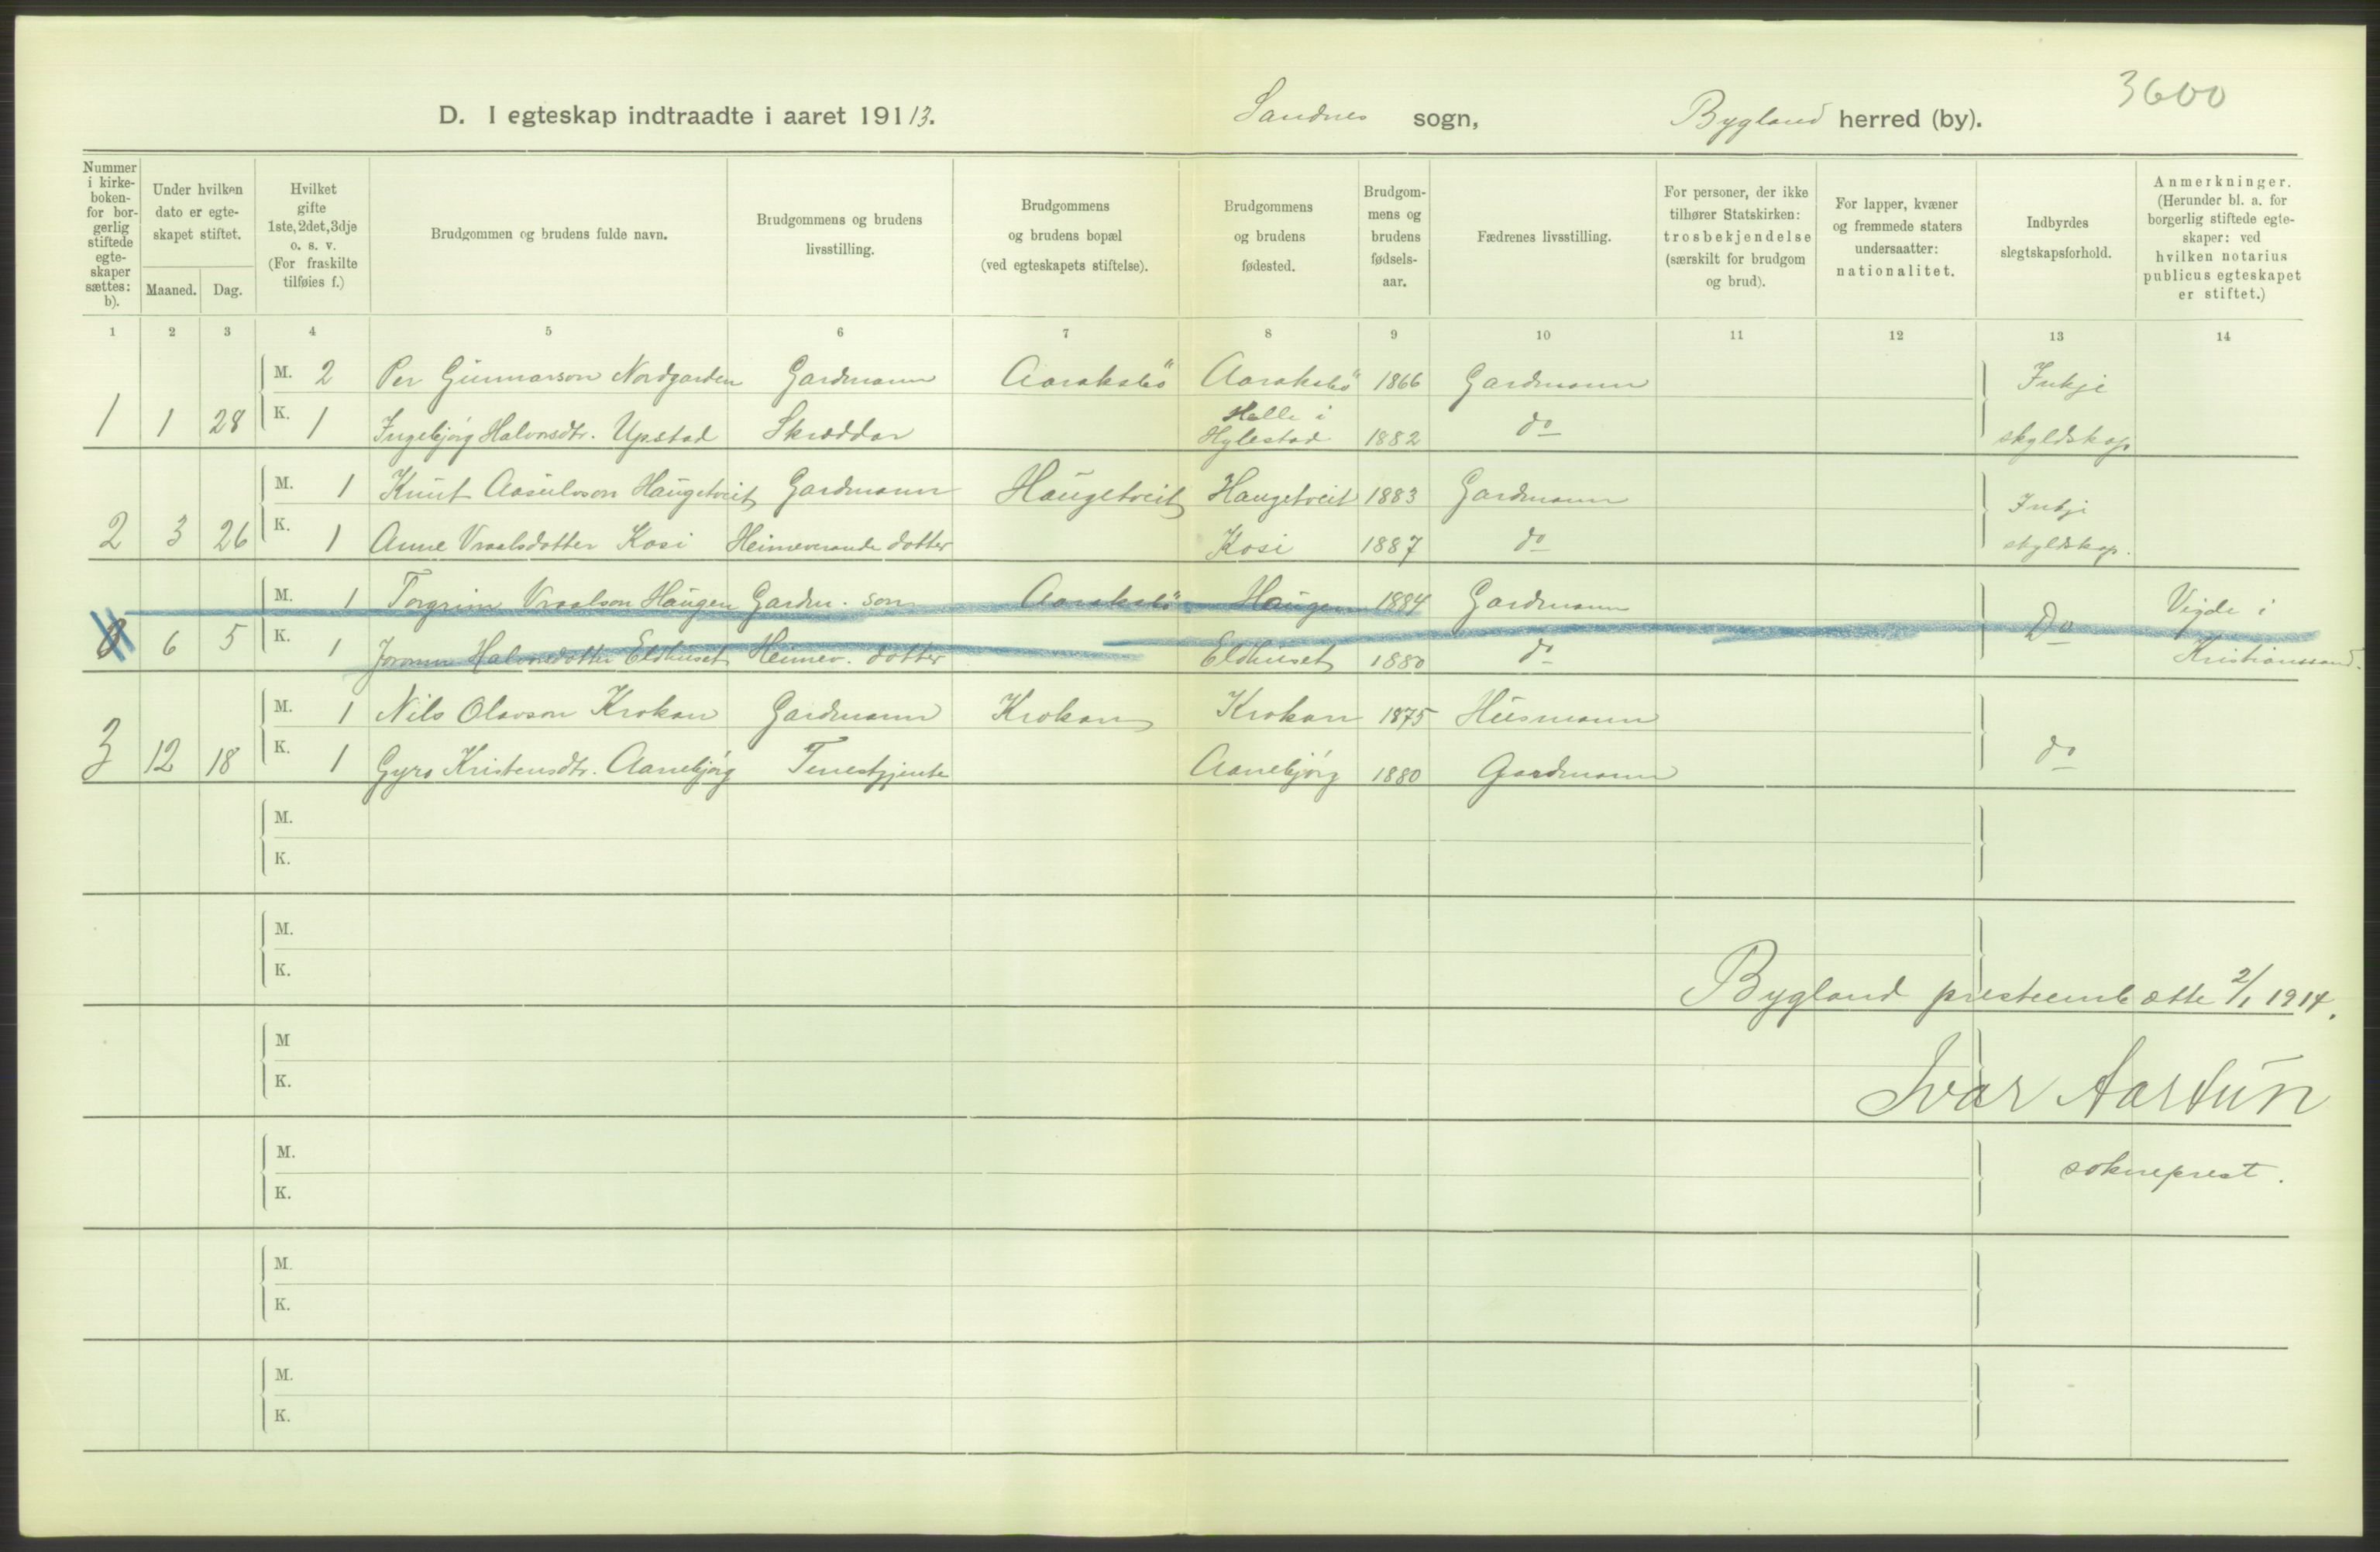 3600
D. I egteskap indtraadte i aaret 191 13. Sandnes sogn, Bygland herred (by).
Nummer i kirke-boken- for bor-gerlig stiftede egte-skaper sættes: b).
Under hvilken dato er egte-skapet stiftet.
Maaned. Dag.
Hvilket gifte 1ste, 2det, 3dje o. s. v. (For fraskilte tilføies f.)
Brudgommen og brudens fulde navn.
Brudgommens og brudens livsstilling.
Brudgommens og brudens bopæl (ved egteskapets stiftelse).
Brudgommens og brudens fødested.
Brudgom-mens og brudens fødsels-aar.
Fædrenes livsstilling.
For personer, der ikke tilhører Statskirken: trosbekjendelse (særskilt for brudgom og brud).
For lapper, kvæner og fremmede staters undersaatter: nationalitet.
Indbyrdes slegtskapsforhold.
Anmerkninger. (Herunder bl. a. for borgerlig stiftede egte-skaper: ved hvilken notarius publicus egteskapet er stiftet.)
1 2 3 4 5 6 7 8 9 10 11 12 13 14
M. 2 Per Gunnarson Nordgarden Gardmann Aaraksbö Aaraksbö 1866 Gardmann Inkje
1 1 28 K. 1 Ingebjørg Halvorsdtr. Upstad Skræddar Helle i Hylestad 1882 do skyldskap
M. 1 Knut Aasulvson Haugetveit Gardmann Haugetveit Haugetveit 1883 Gardmann Inkje
2 3 26 K. 1 Anne Vraalsdotter Kosi Heimeverande dotter Kosi 1887 do skyldskap.
M. 1 Torgrim Vraalson Haugen Gardm. son Aaraksbö Haugen 1884 Gardmann Do Vigde i
6 5 K. 1 Joronn Halvorsdotter Eldhuset Heimev. dotter Eldhuset 1880 do Kristianssand.
M. 1 Nils Olavson Krokan Gardmann Krokan Krokan 1875 Husmann
3 12 18 K. 1 Gyro Kristensdtr. Aanebjørg Tenestgjente Aanebjørg 1880 Gardmann do
M.
K.
M.
K.
Bygland prestembætte 2/1 1914.
M
K.
Ivar Aartun
M.
K.
sokneprest.
M.
K.
M.
K.